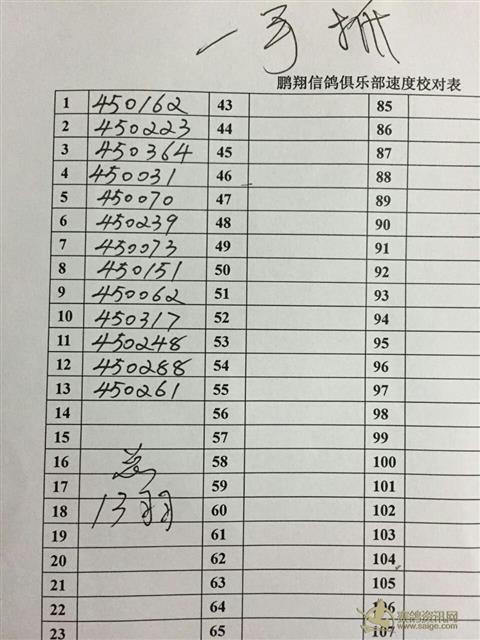 一号批
鹏翔信鸽俱乐部速度校对表
1 450162 43 85
2 450223 44 86
3 450364 45 87
4 450031 46 88
5 450070 47 89
6 450239 48 90
7 450073 49 91
8 450151 50 92
9 450062 51 93
10 450317 52 94
11 450248 53 95
12 450288 54 96
13 450261 55 97
14 56 98
15 57 99
16 58 100
17 59 101
18 13羽 60 102
19 61 103
20 62 104
21 63 105
22 64 106
23 65 107
赛鸽资讯网
www.saige.com